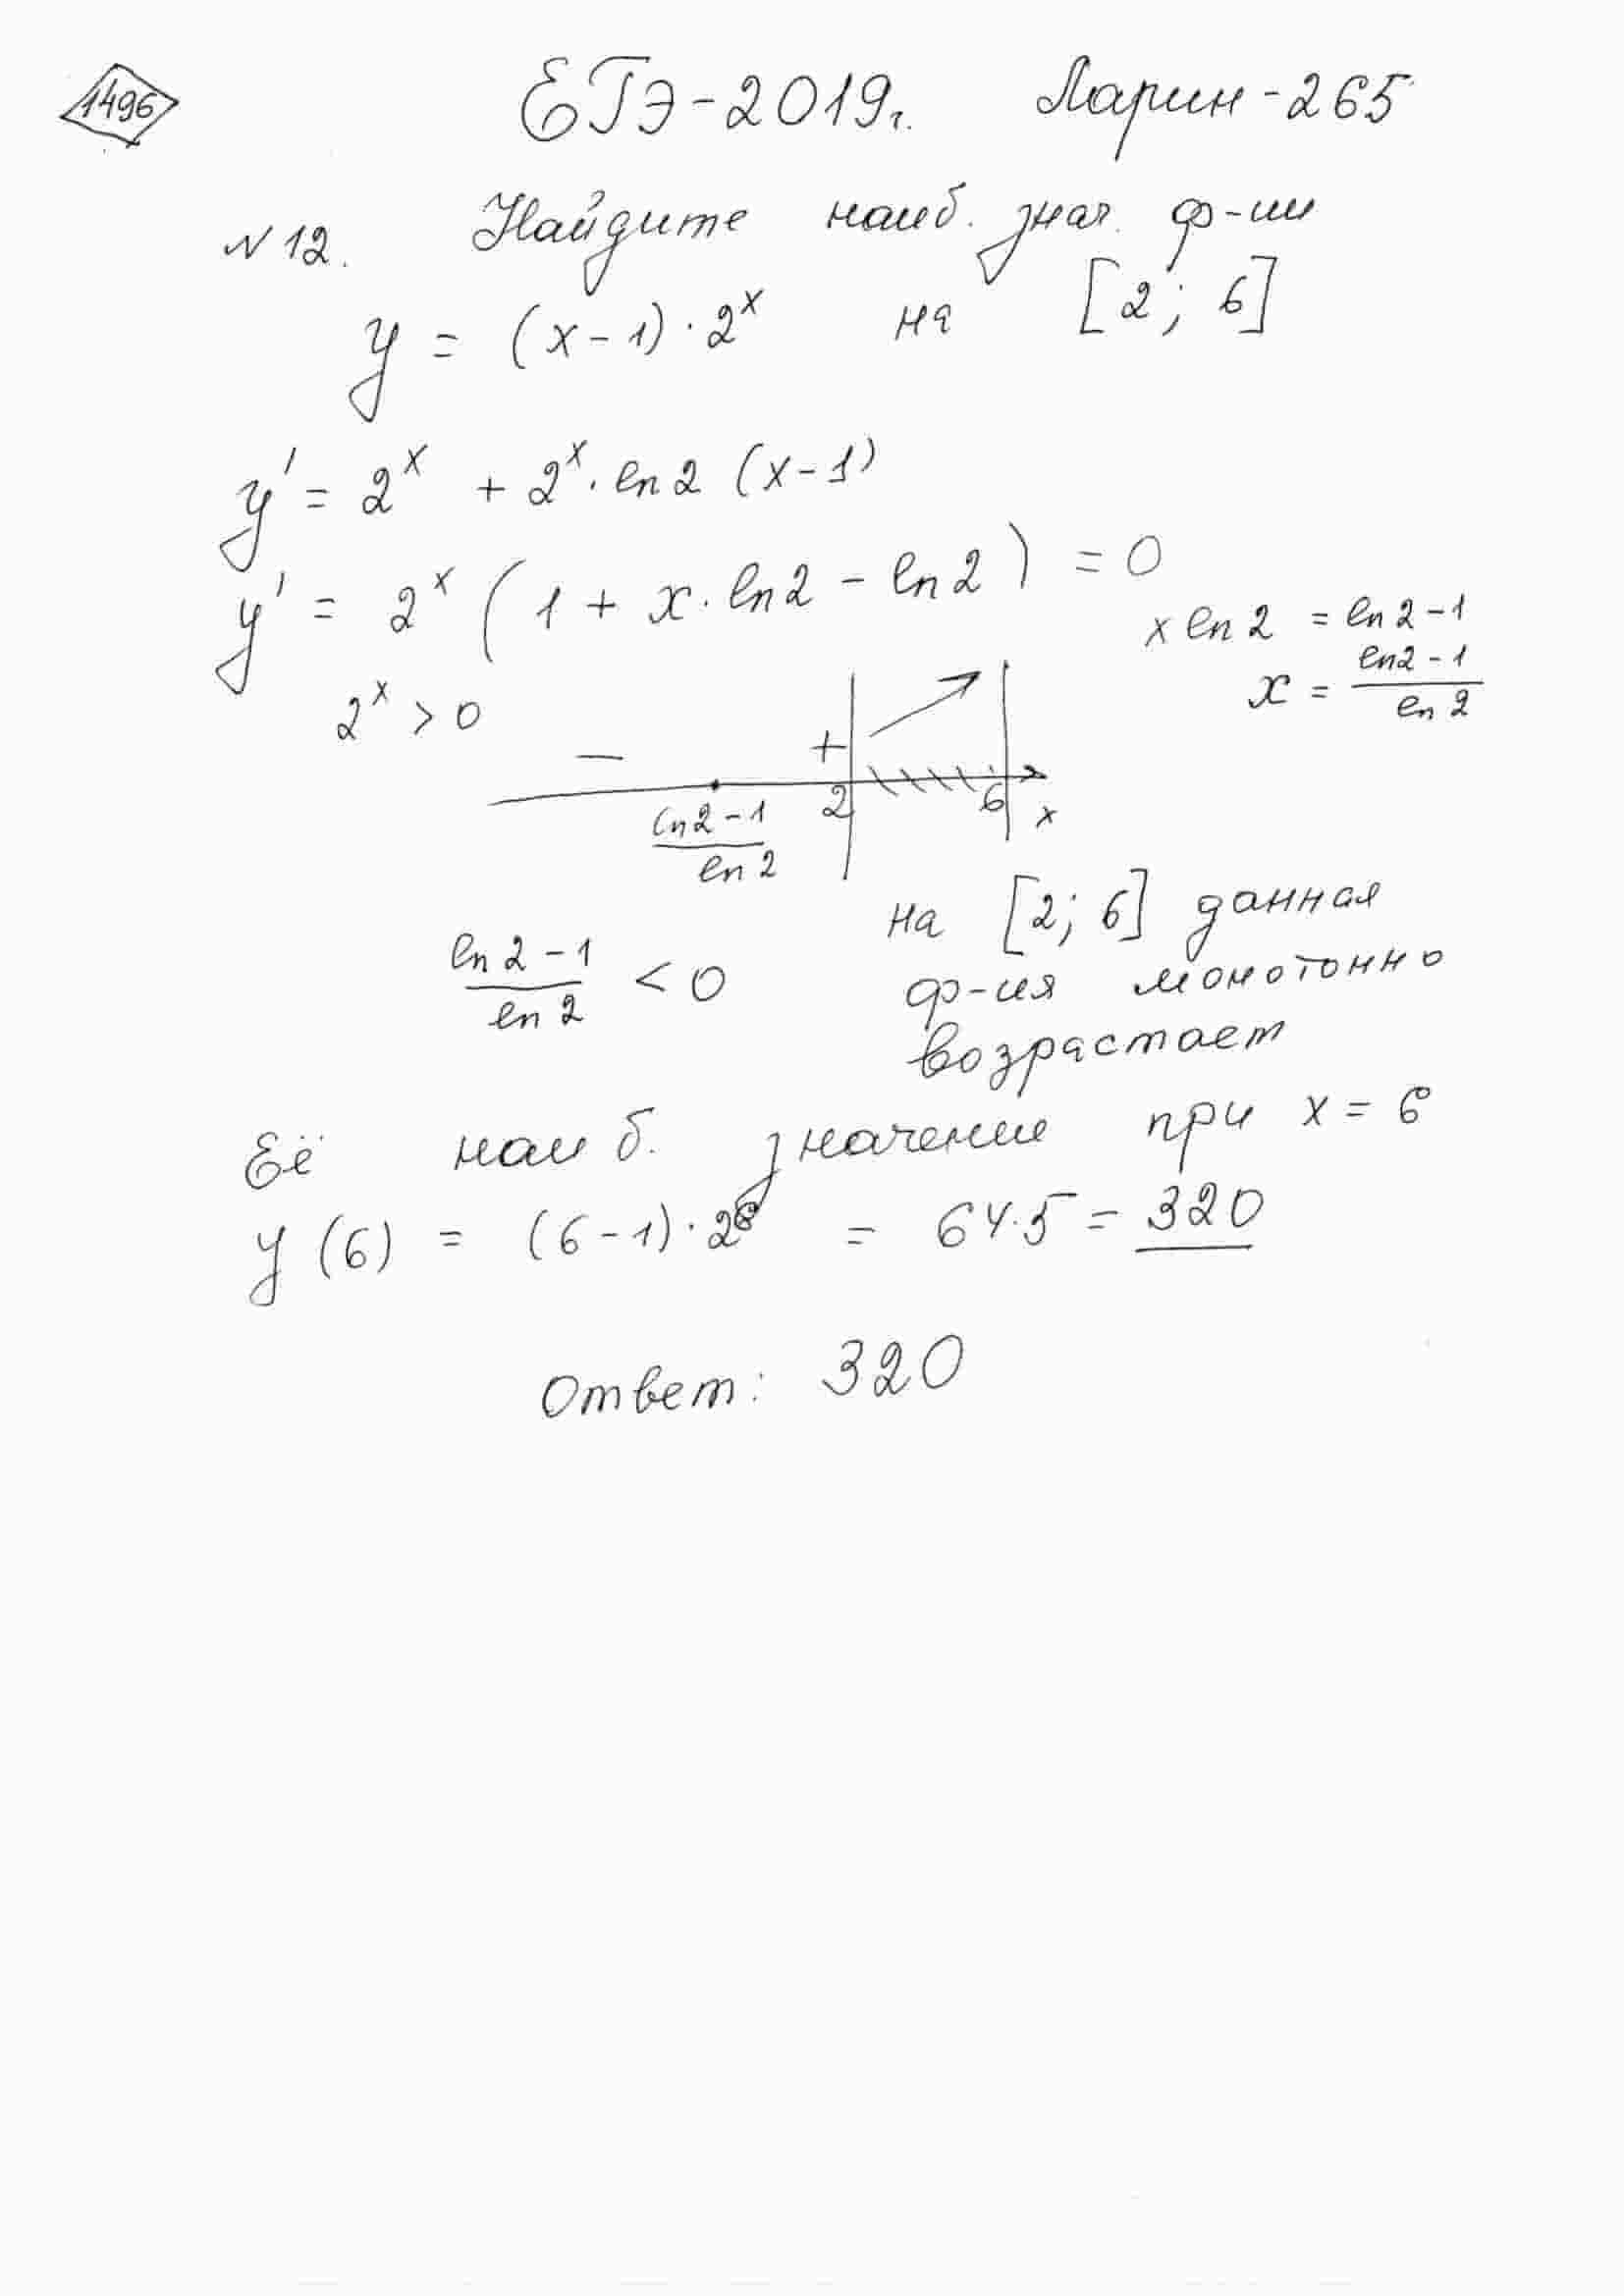 1496
ЕГЭ-2019г. Ларин-265
№12. Найдите наиб. знач. ф-ии
y = (x-1)·2^x на [2; 6]
y' = 2^x + 2^x·ln2 (x-1)
y' = 2^x (1 + x·ln2 - ln2) = 0
x ln2 = ln2-1
x = (ln2-1)/ln2
2^x > 0
- + 
(ln2-1)/ln2 2 6 x
(ln2-1)/ln2 < 0
на [2; 6] данная
ф-ия монотонно
возрастает
Её наиб. значение при x = 6
y(6) = (6-1)·2^6 = 64·5 = 320
Ответ: 320